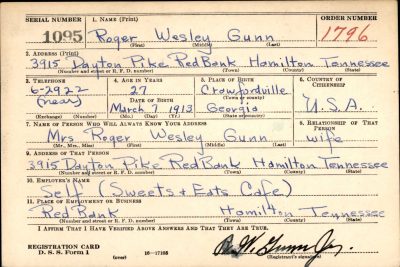 SERIAL NUMBER 1. NAME (Print) ORDER NUMBER
1095 Roger Wesley Gunn 1796
(First) (Middle) (Last)
2. ADDRESS (Print)
3915 Dayton Pike Red Bank Hamilton Tennessee
(Number and street or R. F. D. number) (Town) (County) (State)
3. TELEPHONE 4. AGE IN YEARS 5. PLACE OF BIRTH 6. COUNTRY OF CITIZENSHIP
6-2922 27 Crawfordville
(Town or county)
DATE OF BIRTH
(near) March 7 1913 Georgia U.S.A.
(Mo.) (Day) (Yr.) (State or country)
7. NAME OF PERSON WHO WILL ALWAYS KNOW YOUR ADDRESS 8. RELATIONSHIP OF THAT PERSON
Mrs Roger Wesley Gunn wife
(Mr., Mrs., Miss) (First) (Middle) (Last)
9. ADDRESS OF THAT PERSON
3915 Dayton Pike Red Bank Hamilton Tennessee
(Number and street or R. F. D. number) (Town) (County) (State)
10. EMPLOYER'S NAME
Self (Sweets & Eats Cafe)
11. PLACE OF EMPLOYMENT OR BUSINESS
Red Bank Hamilton Tennessee
(Number and street or R. F. D. number) (Town) (County) (State)
I AFFIRM THAT I HAVE VERIFIED ABOVE ANSWERS AND THAT THEY ARE TRUE.
REGISTRATION CARD
D. S. S. Form 1 (over) 16-17105 (Registrant's signature)